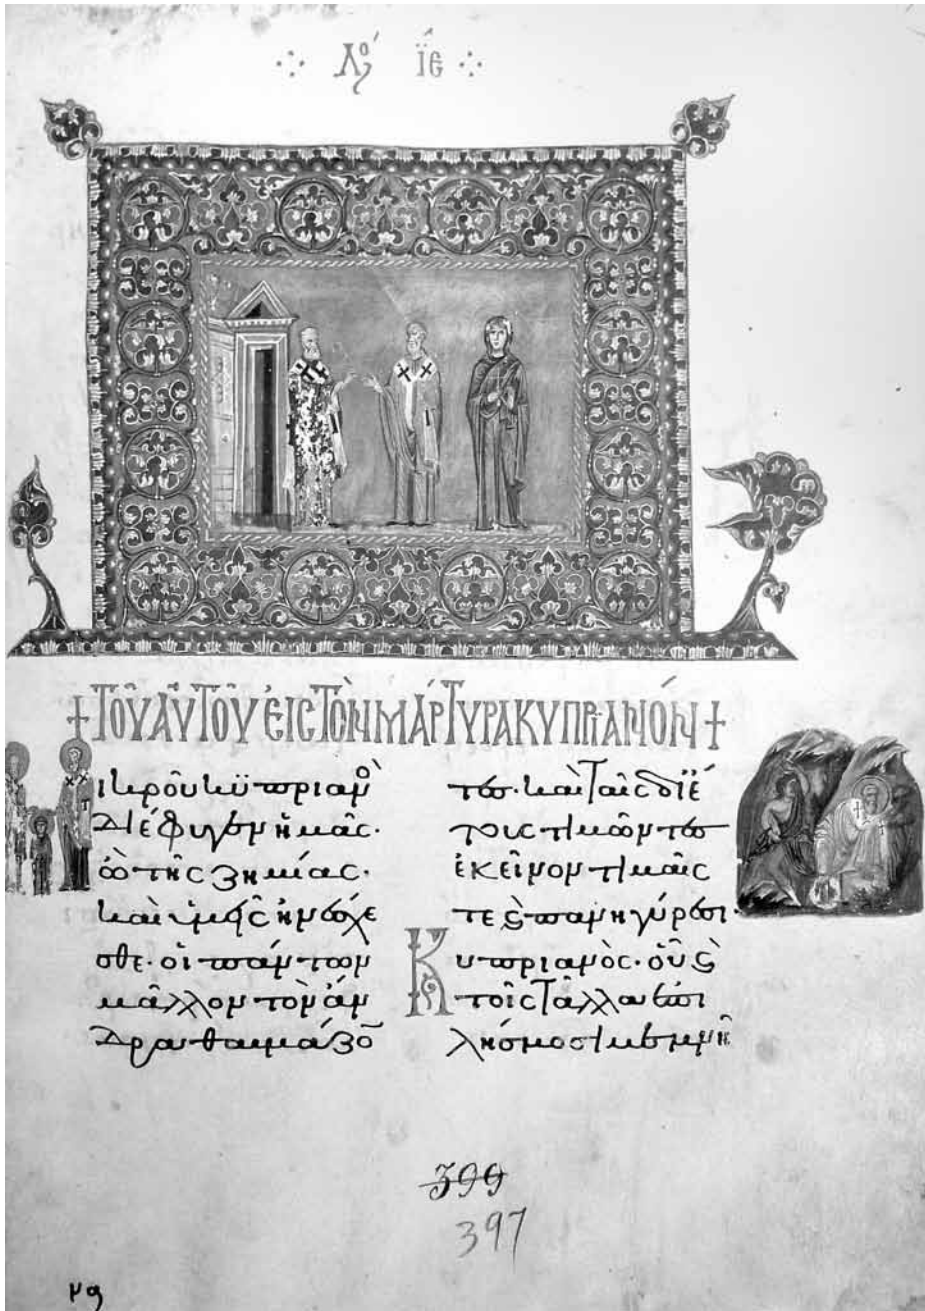 Λό ιε
+ΤΟΥ ΑΥΤΟΥ ΕΙΣ ΤΟΝ ΜΑΡΤΥΡΑ ΚΥΠΡΙΑΝΟΝ+
ικροῦ κϋπριανὸ
διέφυγεν ἡμᾶς·
ὢ τῆς ζημίας·
καὶ ὑμεῖς ἠνέσχε
σθε· οἱ πάντων
μᾶλλον τὸν ἄν
δρα θαυμάζο
τες· καὶ ταῖς δι ἔ
τους τιμῶντες
ἐκεῖνον τιμαῖς
τε ϗ πανηγύρεσι·
Κυπριανὸς· οὗ ϗ
τοῖς τἄλλα ἐπι
λήσμοσιν μεμνῆ
399
397